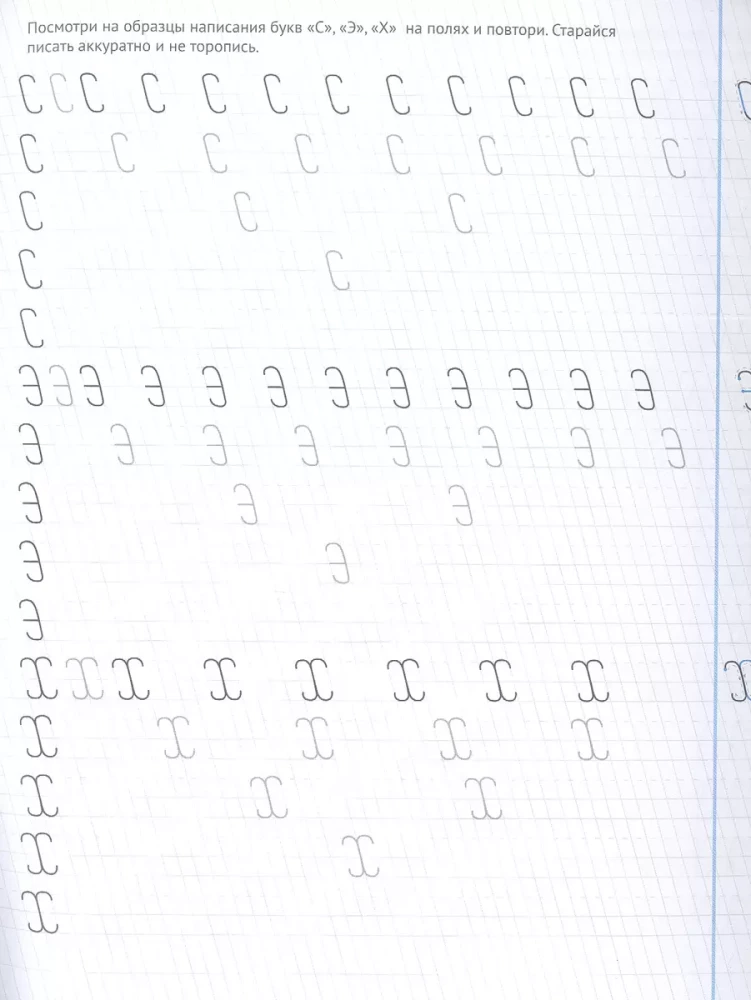 Посмотри на образцы написания букв «С», «Э», «Х» на полях и повтори. Старайся
писать аккуратно и не торопись.
С С С С С С С С С С С С С
С С С С С С С С
С С С
С С
С
Э Э Э Э Э Э Э Э Э Э Э Э
Э Э Э Э Э Э Э Э
Э Э Э
Э Э
Э
Х Х Х Х Х Х Х Х Х
Х Х Х Х Х
Х Х Х
Х Х
Х